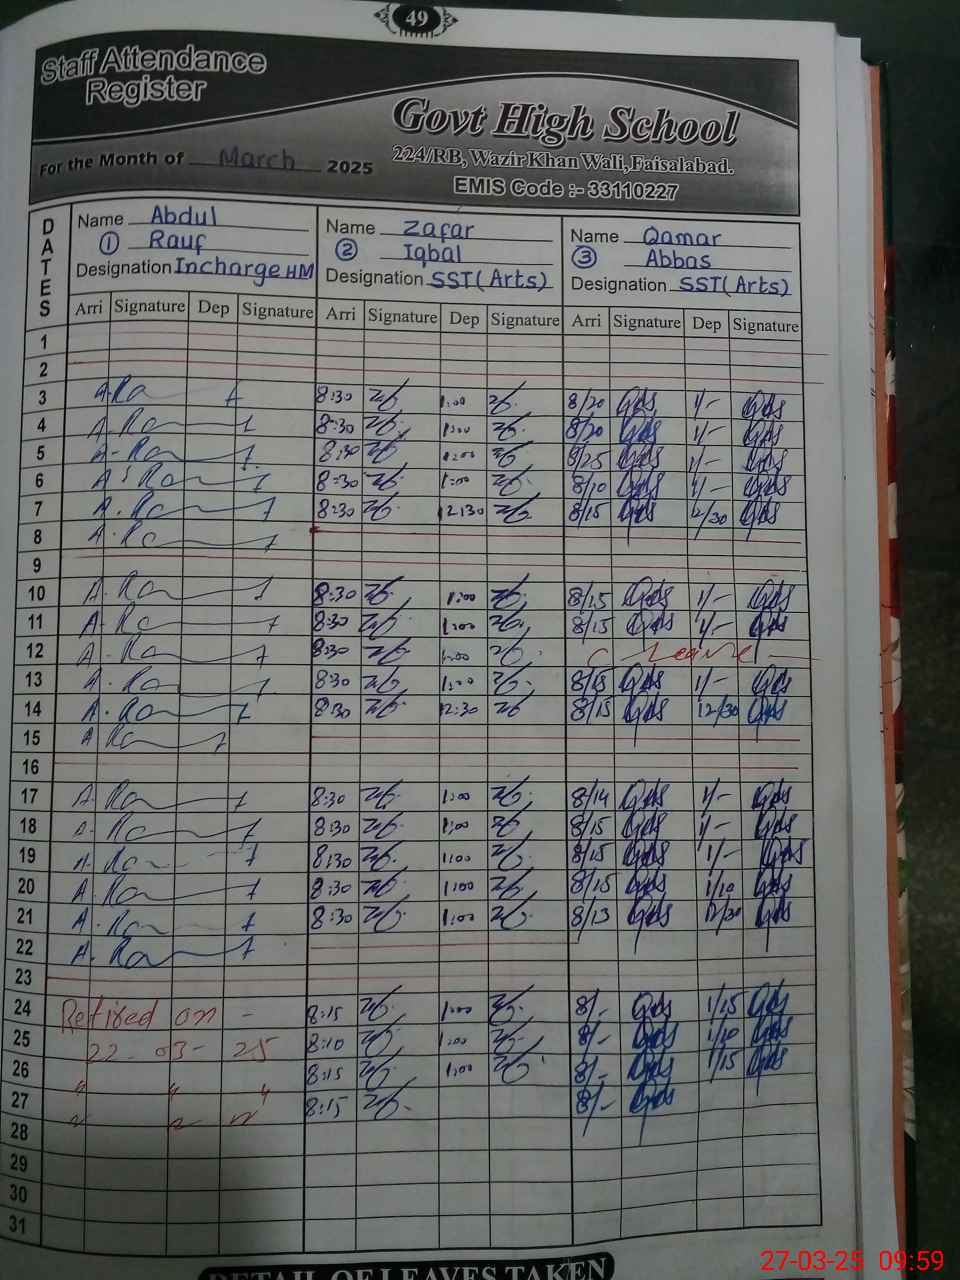 49
Staff Attendance
Register
Govt High School
224/RB, Wazir Khan Wali, Faisalabad.
For the Month of March 2025
EMIS Code :- 33110227
DATES
Name Abdul
① Rauf
Designation Incharge HM
Name Zafar
② Iqbal
Designation SST(Arts)
Name Qamar
③ Abbas
Designation SST(Arts)
Arri Signature Dep Signature Arri Signature Dep Signature Arri Signature Dep Signature
1
2
3 8:30 1:00 8/20 1/-
4 8:30 1:00 8/20 1/-
5 8:30 1:00 8/25 1/-
6 8:30 1:00 8/10 1/-
7 8:30 12:30 8/15 12/30
8
9
10 8:30 1:00 8/15 1/-
11 8:30 1:00 8/15 1/-
12 8:30 1:00 C Leave
13 8:30 1:00 8/15 1/-
14 8:30 12:30 8/15 12/30
15
16
17 8:30 1:00 8/14 1/-
18 8:30 1:00 8/15 1/-
19 8:30 1:00 8/15 1/-
20 8:30 1:00 8/15 1/10
21 8:30 1:00 8/13 12/30
22
23
24 Retired on - 8:15 1:00 8/- 1/15
25 22-03-25 8:10 1:00 8/- 1/10
26 " " " 8:15 1:00 8/- 1/15
27 8:15 8/-
28
29
30
31
DETAIL OF LEAVES TAKEN
27-03-25 09:59